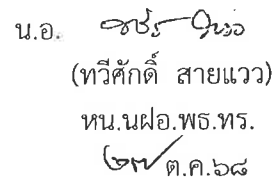 น.อ.
(ทวีศักดิ์ สายแวว)
หน.นฝอ.พธ.ทร.
๒๗ ต.ค.๖๘